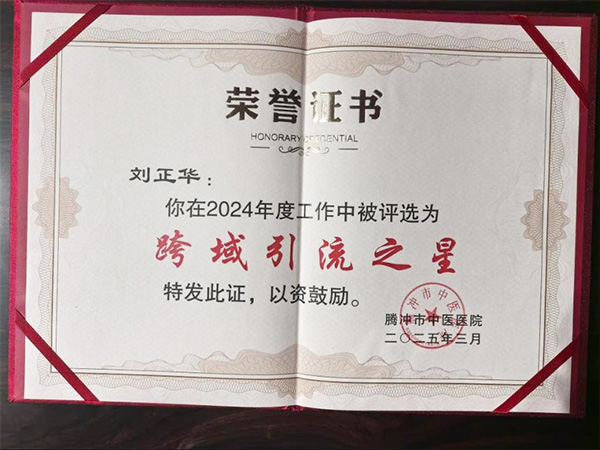 荣誉证书
HONORARY CREDENTIAL
刘正华：
你在2024年度工作中被评选为
跨域引流之星
特发此证，以资鼓励。
腾冲市中医医院
二〇二五年三月